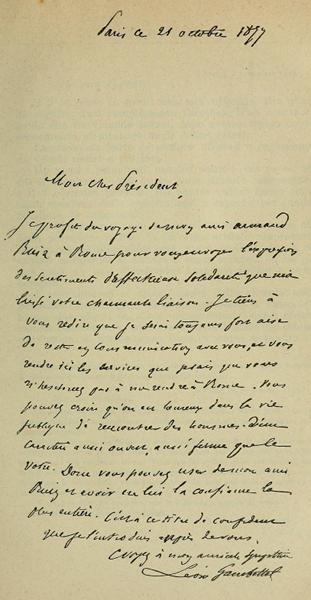 Paris ce 21 octobre 1877
Mon cher Président,
Je profite du voyage de mon ami Armand
Ruiz à Rome pour vous envoyer l'expression
des sentiments d'affectueuse solidarité que m'a
laissé votre charmante liaison. Je tiens à
vous redire que je serai toujours fort aise
de rester en communication avec vous, de vous
rendre ici les services que je sais que vous
n'hésiterez pas à me rendre à Rome. Vous
pouvez croire qu'on est heureux dans la vie
publique de rencontrer des hommes d'un
caractère aussi ouvert, aussi ferme que le
vôtre. Donc vous pouvez user de mon ami
Ruiz et avoir en lui la confiance la
plus entière. C'est à ce titre de confident
que je l'introduis auprès de vous.
Croyez à mon amicale sympathie
Léon Gambetta